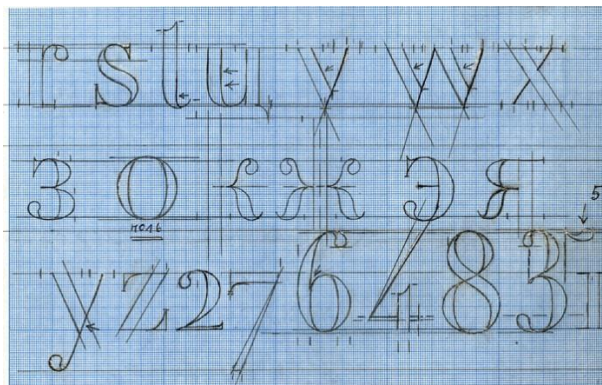 r s t u v w x
З 0 Ж Э Я
НОЛЬ
5
y z 2 7 6 4 8 3